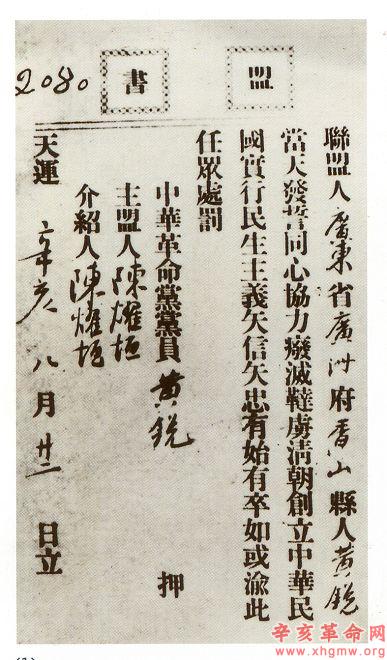 盟書
2080
聯盟人廣東省廣州府香山縣人黃銳
當天發誓同心協力癈滅韃虜淸朝創立中華民
國實行民生主義矢信矢忠有始有卒如或渝此
任眾處罰
中華革命黨黨員黃銳 押
主盟人陳燿垣
介紹人陳燿垣
天運辛亥八月廿二日立
辛亥革命网
www.xhgmw.org